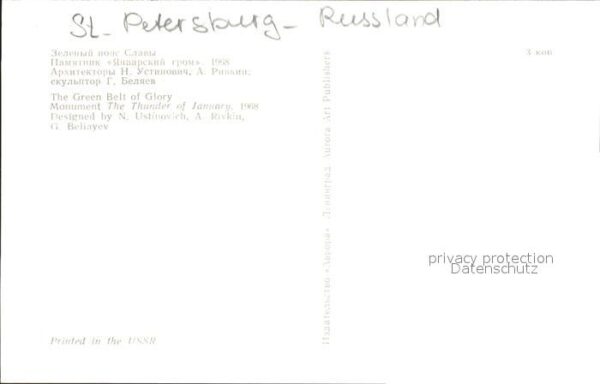 St. Petersburg - Russland
Зеленый пояс Славы
Памятник «Январский гром». 1968
Архитекторы Н. Устинович, А. Ривкин;
скульптор Г. Беляев
The Green Belt of Glory
Monument The Thunder of January. 1968
Designed by N. Ustinovich, A. Rivkin,
G. Beliayev
3 коп
Издательство «Аврора» Ленинград Aurora Art Publishers
privacy protection
Datenschutz
Printed in the USSR